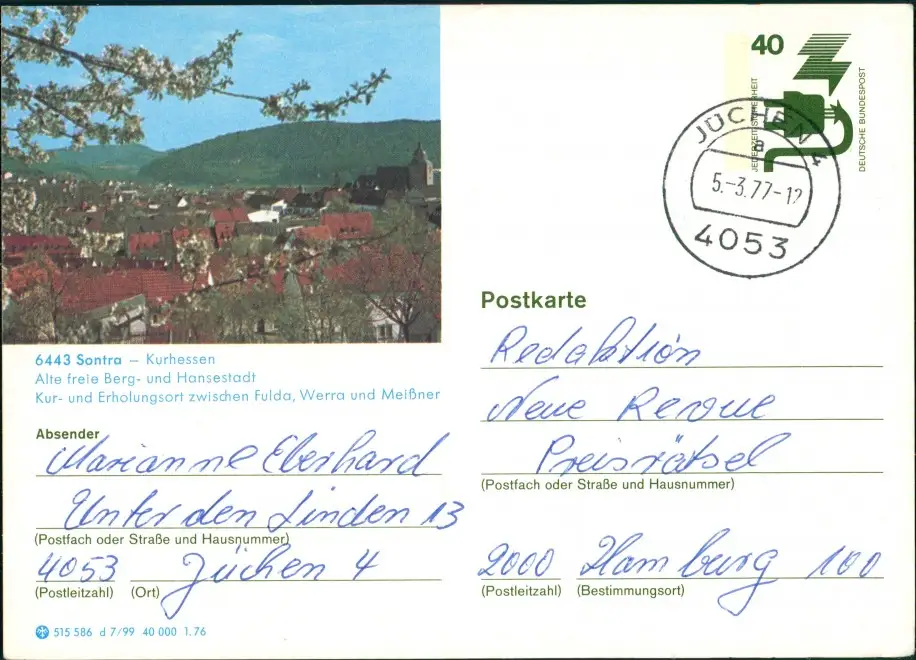 40
JEDERZEIT SICHERHEIT
DEUTSCHE BUNDESPOST
JÜCHEN 4
5.-3.77-12
4053
6443 Sontra – Kurhessen
Alte freie Berg- und Hansestadt
Kur- und Erholungsort zwischen Fulda, Werra und Meißner
Absender
Marianne Eberhard
Unter den Linden 13
(Postfach oder Straße und Hausnummer)
4053 Jüchen 4
(Postleitzahl) (Ort)
515 586 d 7/99 40 000 1.76
Postkarte
Redaktion
Neue Revue
Preisrätsel
(Postfach oder Straße und Hausnummer)
2000 Hamburg 100
(Postleitzahl) (Bestimmungsort)